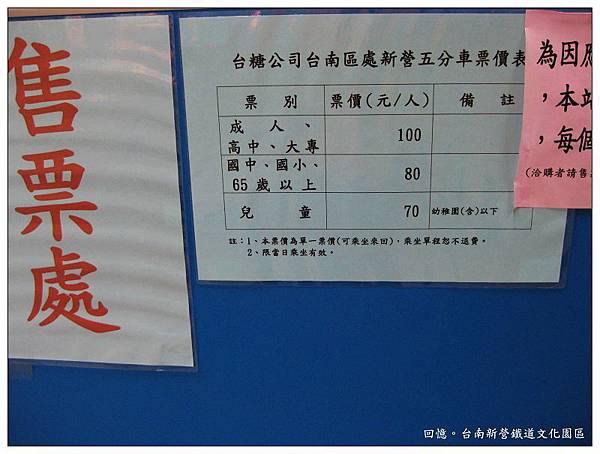 售票處
台糖公司台南區處新營五分車票價表
票別 票價(元/人) 備註
成人、
高中、大專 100
國中、國小、
65歲以上 80
兒童 70 幼稚園(含)以下
註:1、本票價為單一票價(可乘坐來回),乘坐單程恕不退費。
2、限當日乘坐有效。
為因應
,本站
,每個
(洽購者請售
回憶。台南新營鐵道文化園區